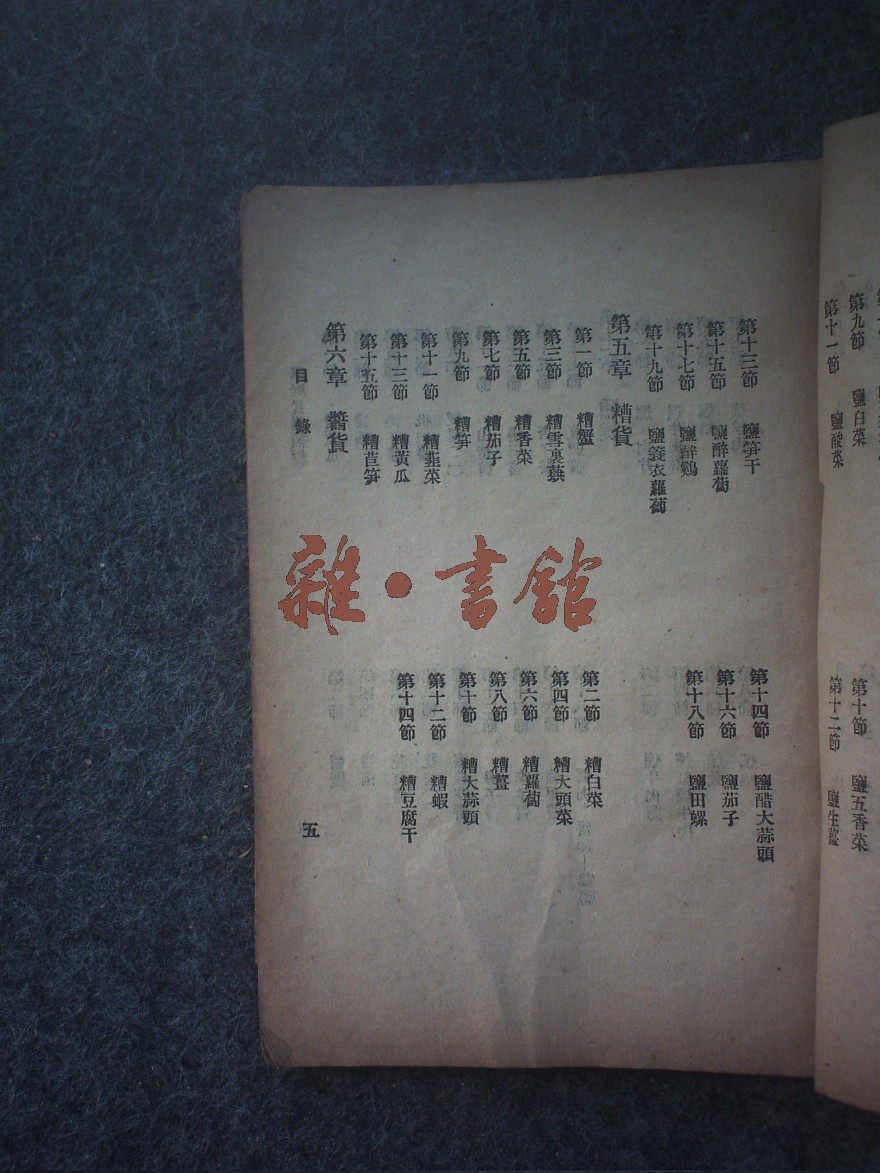 第九節 鹽白菜
第十節 鹽五香菜
第十一節 鹽酸菜
第十二節 鹽生薑
第十三節 鹽笋干
第十四節 鹽醋大蒜頭
第十五節 鹽醉蘿蔔
第十六節 鹽茄子
第十七節 鹽醉鷄
第十八節 鹽田螺
第十九節 鹽蓑衣蘿蔔
第五章 糟貨
第一節 糟蟹
第二節 糟白菜
第三節 糟雪裏蕻
第四節 糟大頭菜
第五節 糟香菜
第六節 糟蘿蔔
第七節 糟茄子
第八節 糟薑
第九節 糟笋
第十節 糟大蒜頭
第十一節 糟韮菜
第十二節 糟蝦
第十三節 糟黃瓜
第十四節 糟豆腐干
第十五節 糟苣笋
第六章 醬貨
目錄
五
雜·書館